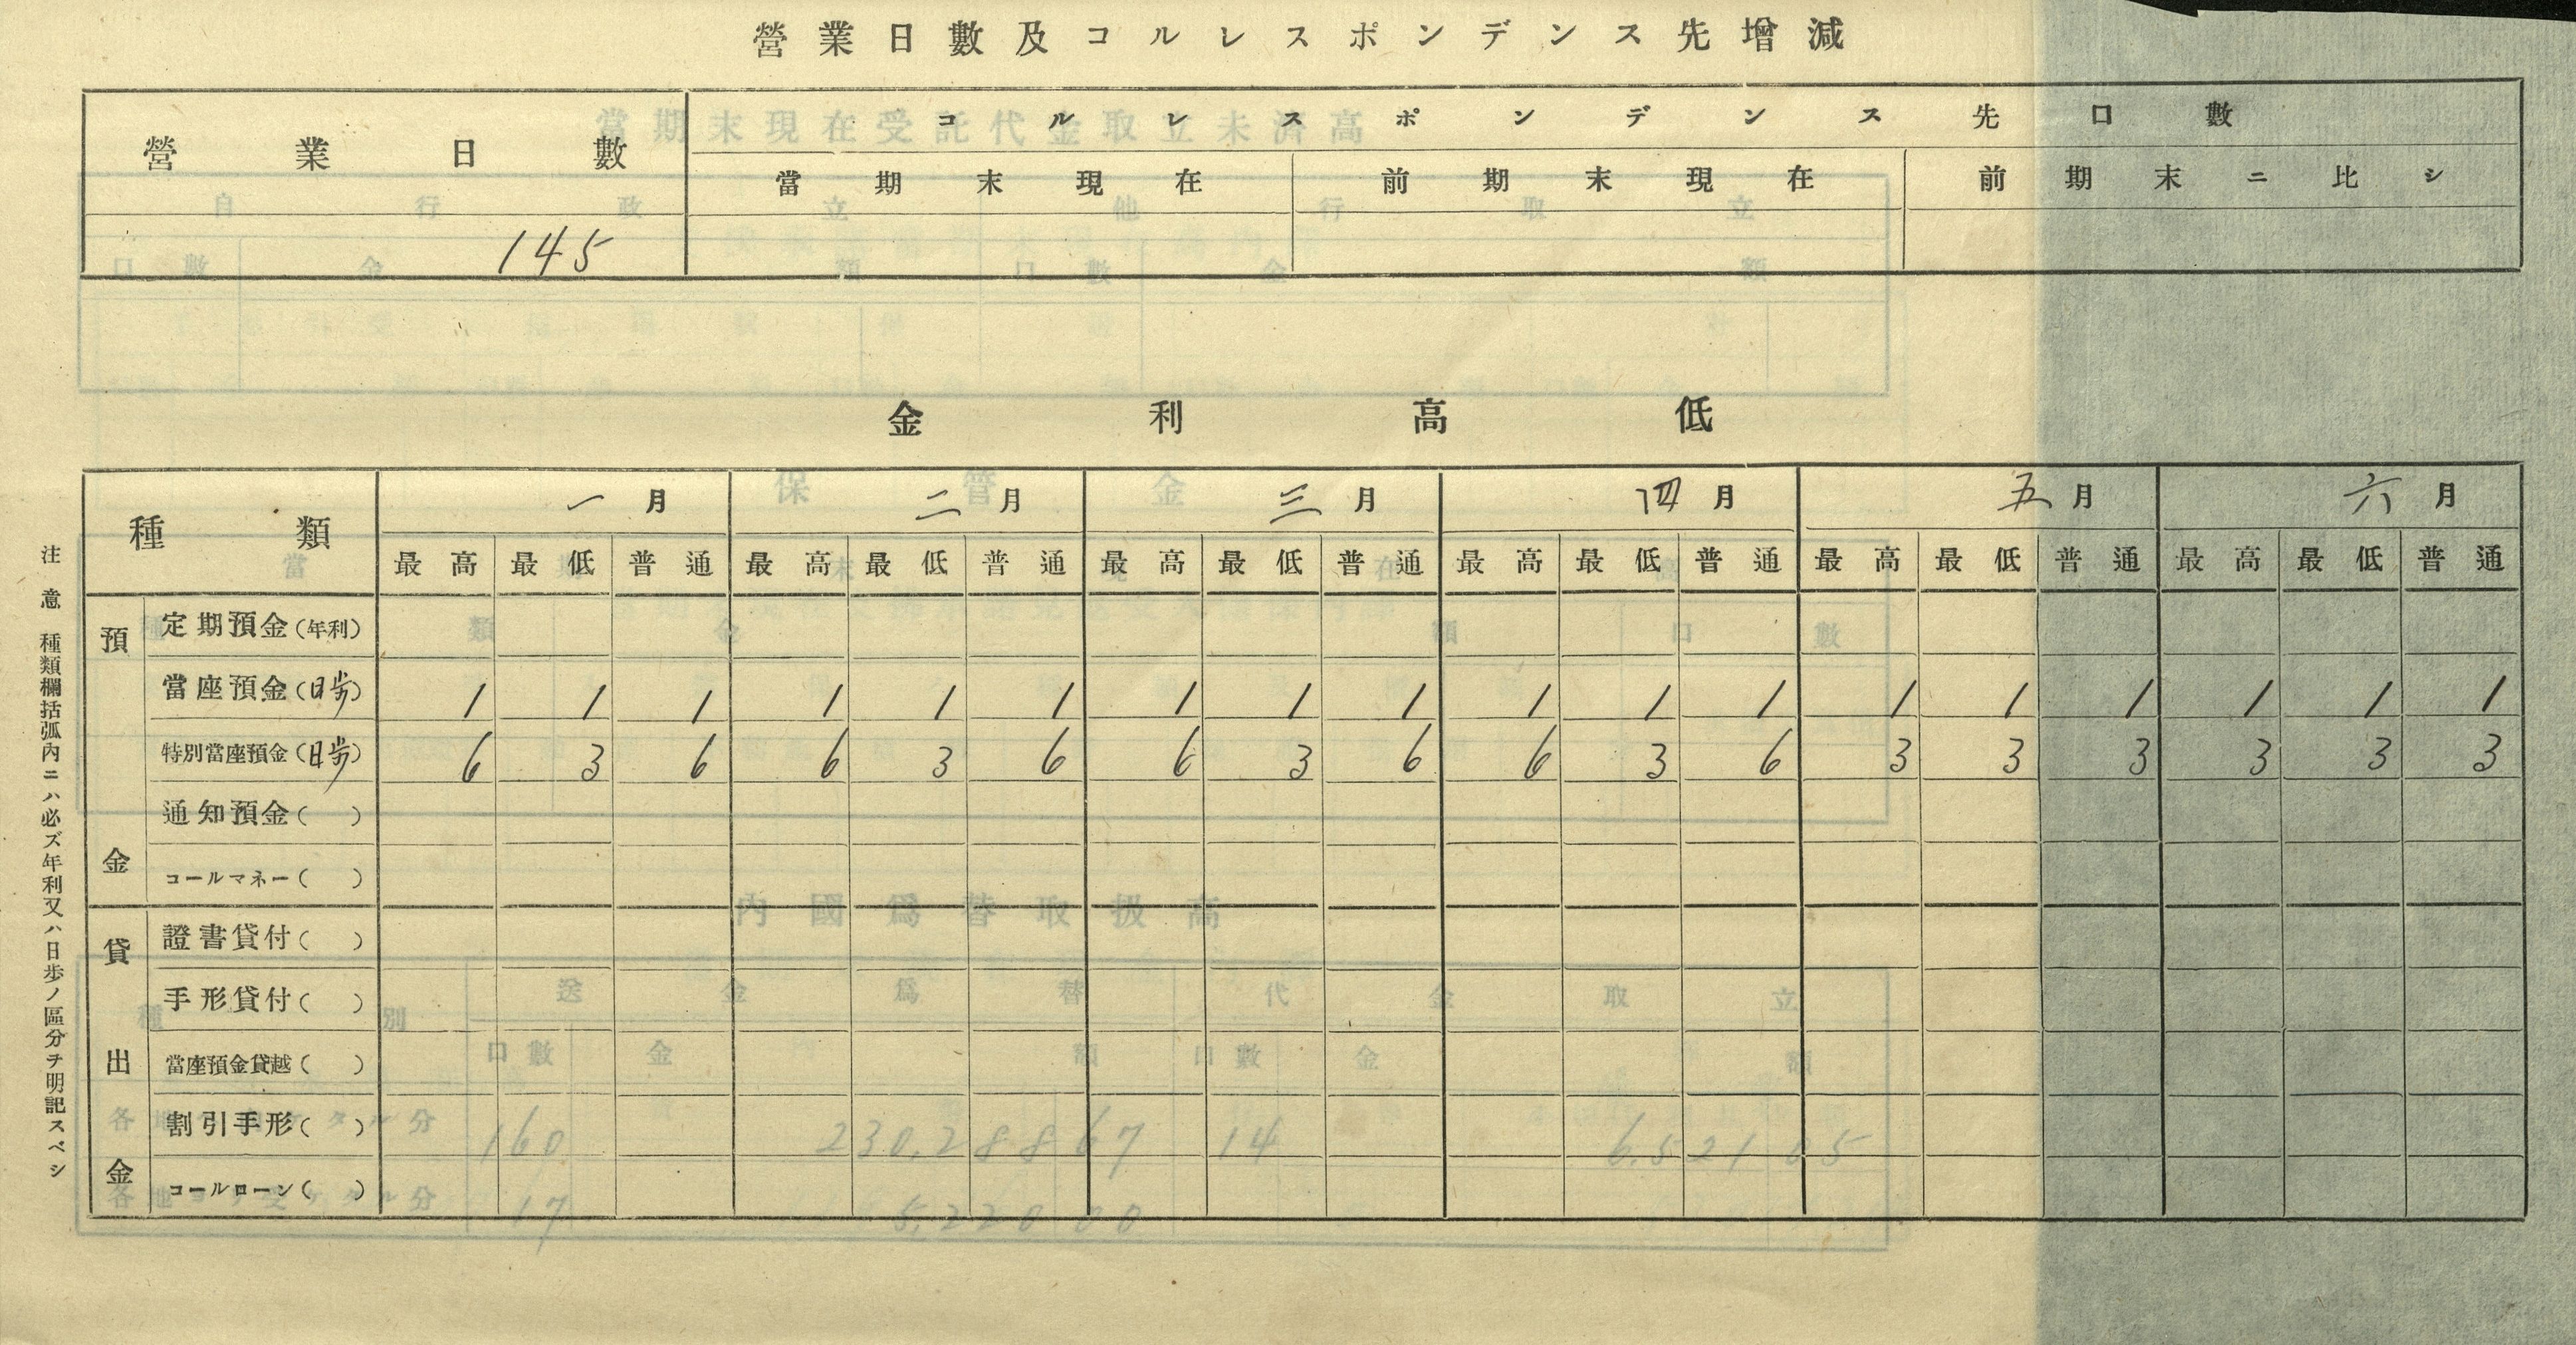 營業日數及コルレスポンデンス先增減
營業日數 コルレスポンデンス先口數
當期末現在 前期末現在 前期末ニ比シ
145
金利高低
種類 一月 二月 三月 四月 五月 六月
最高 最低 普通 最高 最低 普通 最高 最低 普通 最高 最低 普通 最高 最低 普通 最高 最低 普通
預金
定期預金(年利)
當座預金(日歩) 1 1 1 1 1 1 1 1 1 1 1 1 1 1 1 1 1 1
特別當座預金(日歩) 6 3 6 6 3 6 6 3 6 6 3 6 3 3 3 3 3 3
通知預金( )
コールマネー( )
貸出金
證書貸付( )
手形貸付( )
當座預金貸越( )
割引手形( )
コールローン( )
注意 種類欄括弧內ニハ必ズ年利又ハ日歩ノ區分ヲ明記スベシ
當期末現在受託代金取立未濟高
保管金
內國爲替取扱高
送金爲替 代金取立
種別 口數 金額 口數 金額
160 230,288 67 14 6,521 05
17 5,220 00